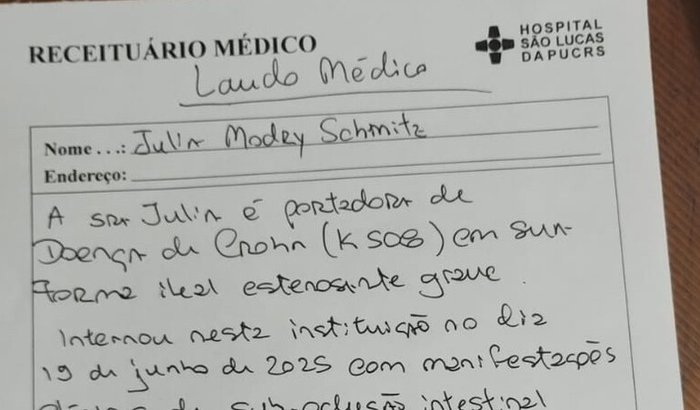 RECEITUÁRIO MÉDICO
HOSPITAL
SÃO LUCAS
DA PUCRS
Laudo Médico
Nome...: Julia Modey Schmitz
Endereço:
A sra Julia é portadora de
Doença de Crohn (K508) em sua
forma ileal estenosante grave.
Internou nesta instituição no dia
19 de junho de 2025 com manifestações
de suboclusão intestinal